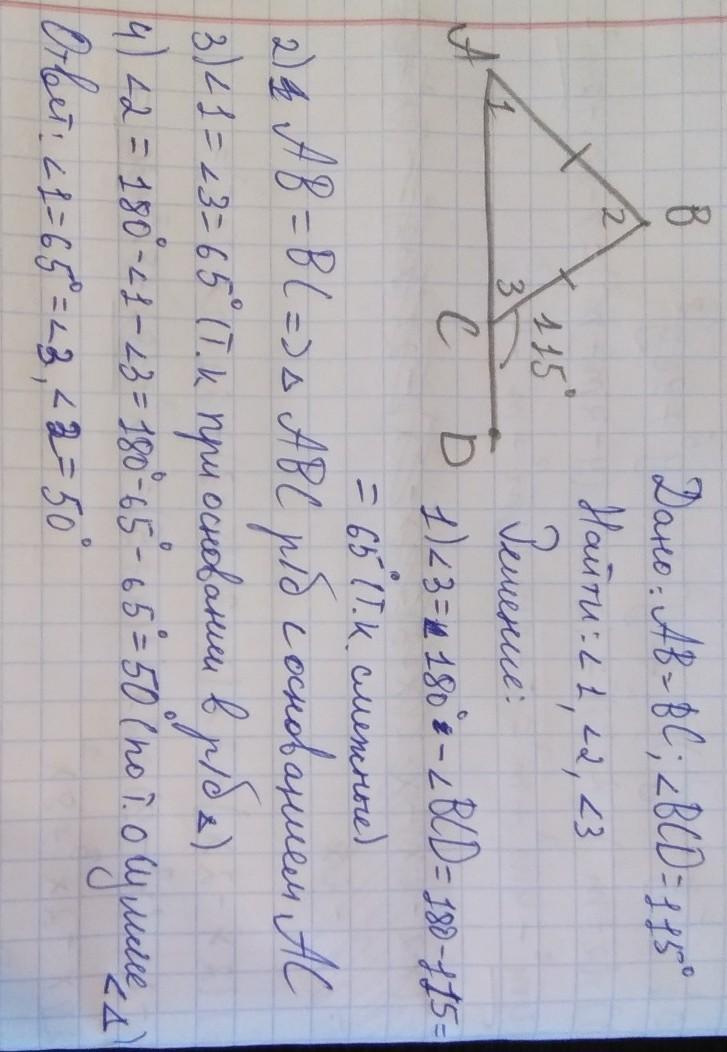 B
A
1
2
3
115°
C
D
Дано: AB = BC; ∠BCD = 115°
Найти: ∠1, ∠2, ∠3
Решение:
1) ∠3 = 180° - ∠BCD = 180 - 115 =
= 65° (т.к. смежные)
2) AB = BC => △ ABC р/б с основанием AC
3) ∠1 = ∠3 = 65° (т.к при основании в р/б △)
4) ∠2 = 180° - ∠1 - ∠3 = 180° - 65° - 65° = 50° (по т. о сумме
∠ △)
Ответ: ∠1 = 65° = ∠3, ∠2 = 50°